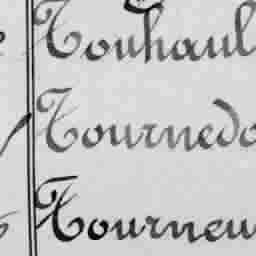 Touhaul
Tournedo
Tourneu